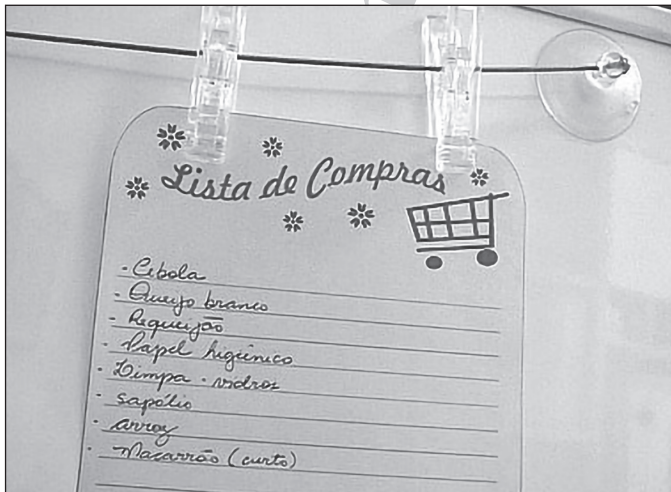 Lista de Compras
- Cebola
- Queijo branco
- Requeijão
- Papel higiênico
- Limpa - vidros
- sapólio
- arroz
- Macarrão (curto)